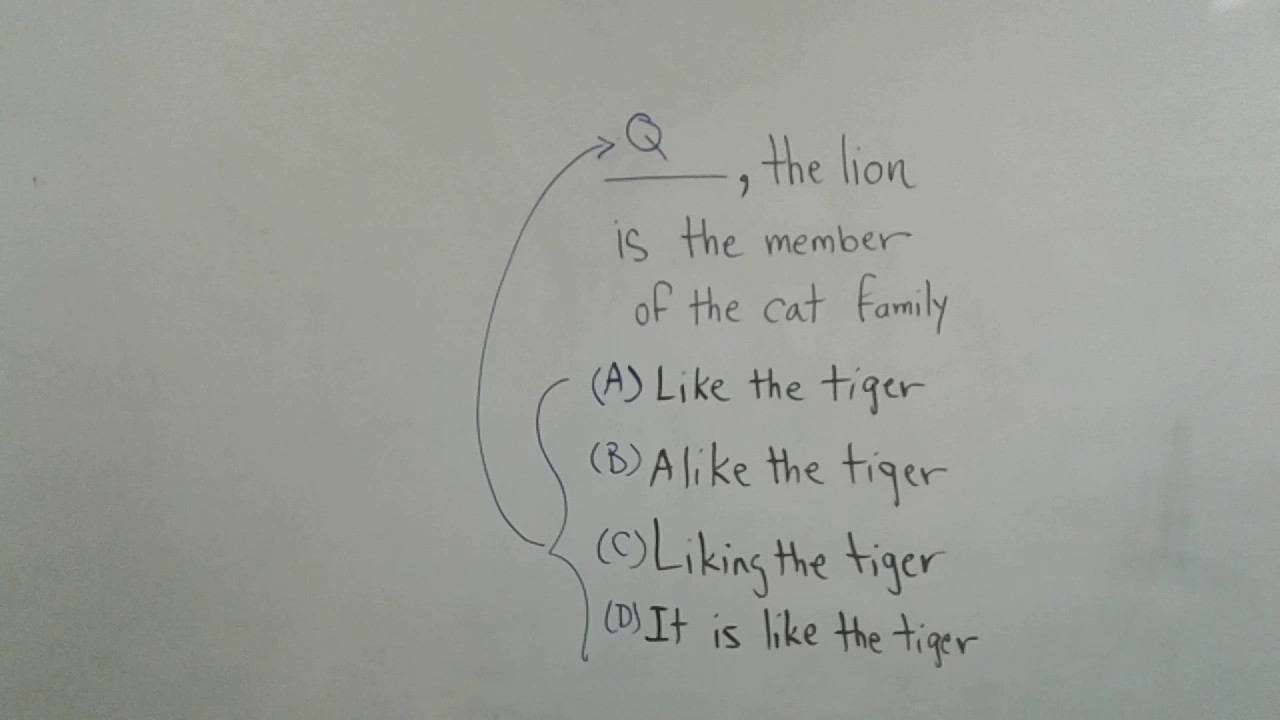 Q
____, the lion
is the member
of the cat family
(A) Like the tiger
(B) Alike the tiger
(C) Liking the tiger
(D) It is like the tiger